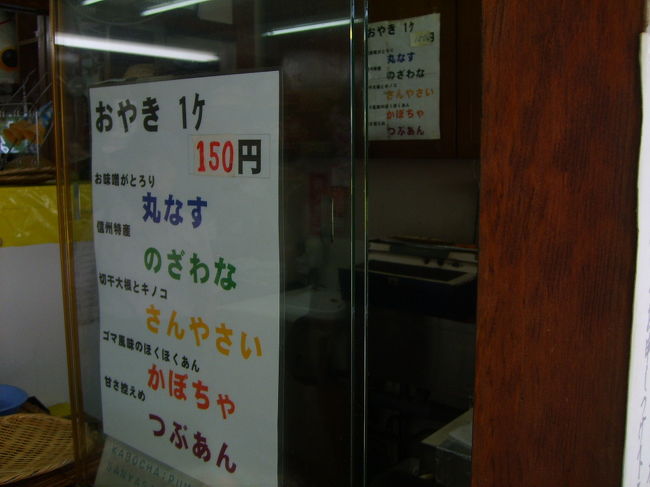 おやき 1ケ
150円
お味噌がとろり
丸なす
信州特産
のざわな
切干大根とキノコ
さんやさい
ゴマ風味のほくほくあん
かぼちゃ
甘さ控えめ
つぶあん
KABOCHA:PUM
おやき 1ケ
丸なす
のざわな
さんやさい
かぼちゃ
つぶあん